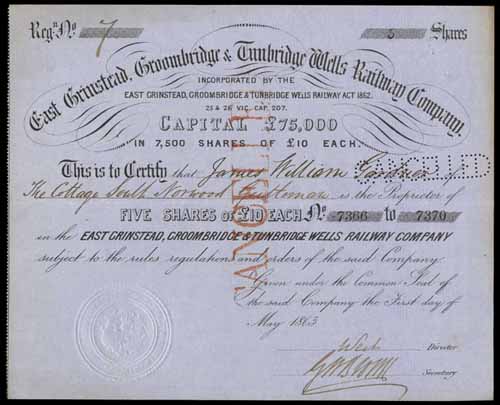 Regd. No. 7 5 Shares
East Grinstead, Groombridge & Tunbridge Wells Railway Company.
INCORPORATED BY THE
EAST GRINSTEAD, GROOMBRIDGE & TUNBRIDGE WELLS RAILWAY ACT 1862.
25 & 26 VIC. CAP. 207.
CAPITAL £75,000
IN 7,500 SHARES OF £10 EACH.
This is to Certify that James William Gardner of
CANCELLED
The Cottage South Norwood Gentleman is the Proprietor of
FIVE SHARES of £10 EACH. No. 7366 to 7370
in the EAST GRINSTEAD, GROOMBRIDGE & TUNBRIDGE WELLS RAILWAY COMPANY
subject to the rules regulations and orders of the said Company.
Given under the Common Seal of
the said Company the First day of
May 1863
Director
Secretary
CANCELLED